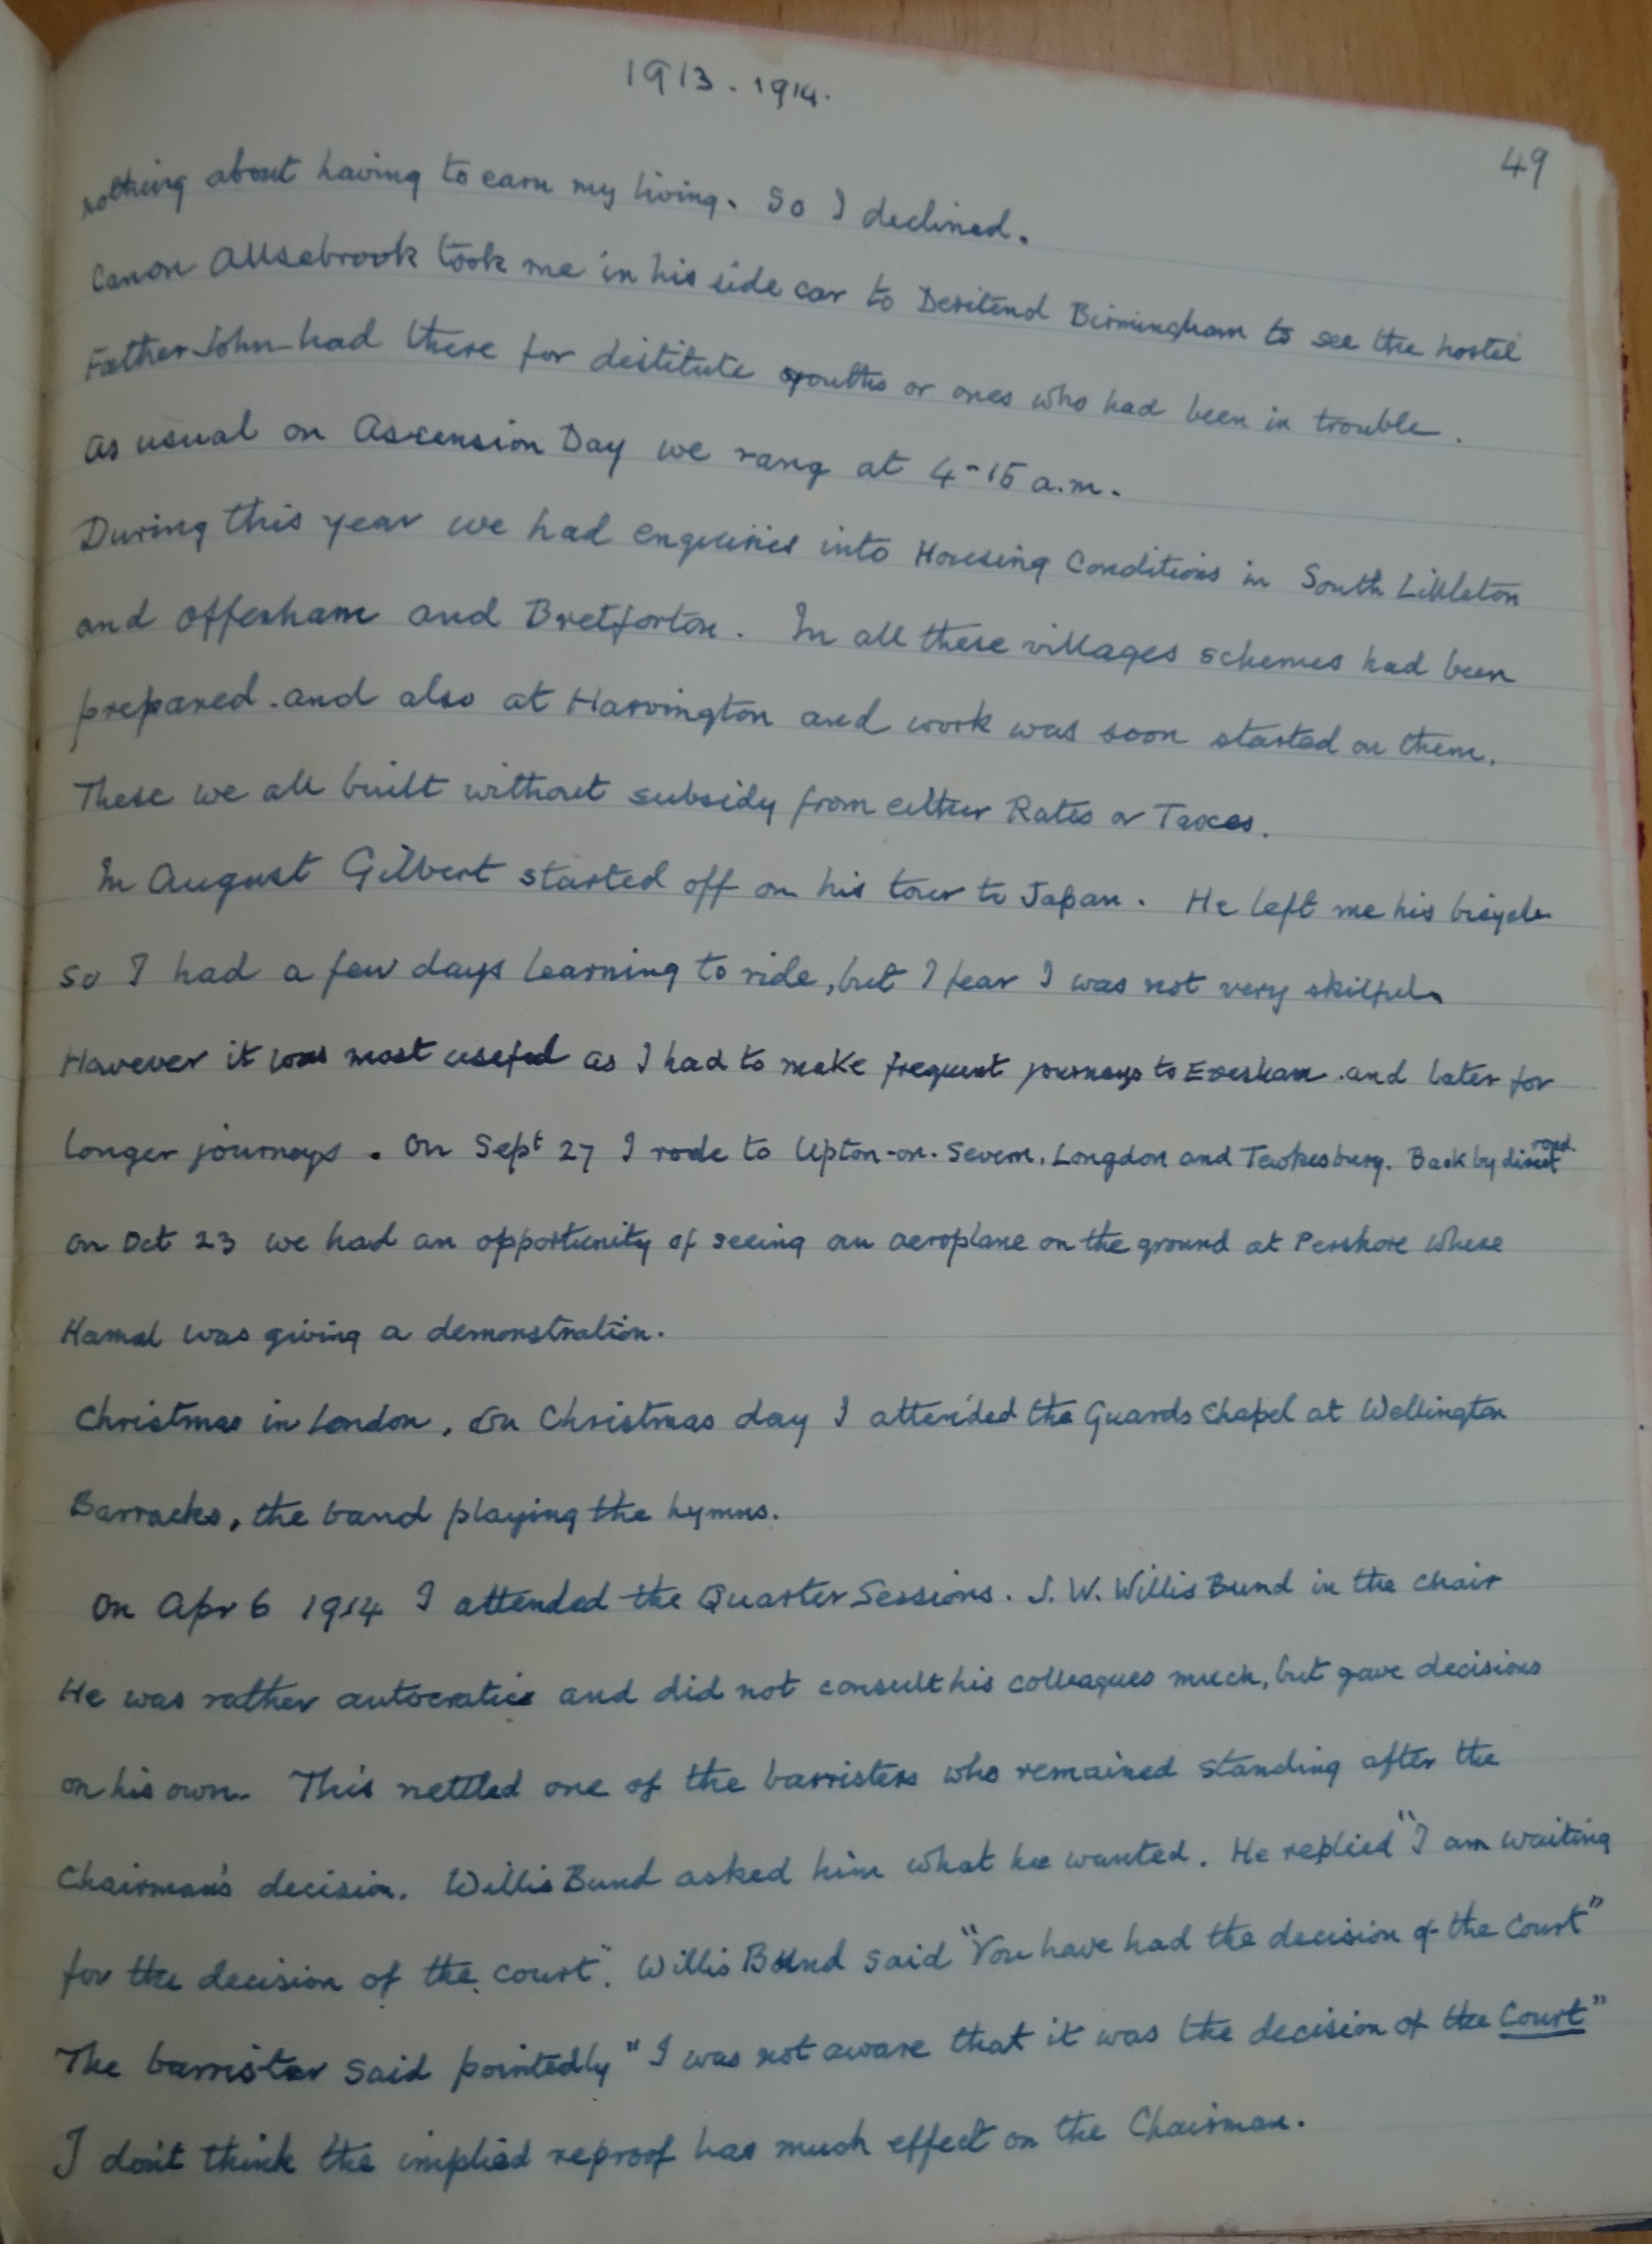 1913. 1914.
49
nothing about having to earn my living. So I declined.
Canon Allsebrook took me in his side car to Deritend Birmingham to see the hostel
Father John had there for destitute youths or ones who had been in trouble.
As usual on Ascension Day we rang at 4-15 a.m.
During this year we had enquiries into Housing Conditions in South Littleton
and Offenham and Bretforton. In all these villages schemes had been
prepared. and also at Harvington and work was soon started on them.
These we all built without subsidy from either Rates or Taxes.
In August Gilbert started off on his tour to Japan. He left me his bicycle
so I had a few days learning to ride, but I fear I was not very skilful.
However it was most useful as I had to make frequent journeys to Evesham. and later for
longer journeys. On Sept 27 I rode to Upton-on-Severn, Longdon and Tewkesbury. Back by direct road.
On Oct 23 we had an opportunity of seeing an aeroplane on the ground at Pershore where
Hamal was giving a demonstration.
Christmas in London. On Christmas day I attended the Guards Chapel at Wellington
Barracks, the band playing the hymns.
On Apr 6 1914 I attended the Quarter Sessions. J. W. Willis Bund in the chair
He was rather autocratic and did not consult his colleagues much, but gave decisions
on his own. This nettled one of the barristers who remained standing after the
Chairman's decision. Willis Bund asked him what he wanted. He replied "I am waiting
for the decision of the court". Willis Bund said "You have had the decision of the Court"
The barrister said pointedly "I was not aware that it was the decision of the Court"
I don't think the implied reproof has much effect on the Chairman.